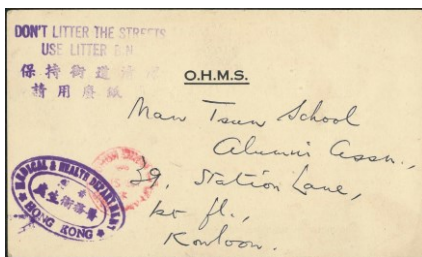 DON'T LITTER THE STREETS
USE LITTER BIN
保持街道清潔
請用廢紙
O.H.M.S.
Man Tsun School
Alumni Assn.,
39, Station Lane,
1st fl.,
Kowloon.
MEDICAL & HEALTH DEPARTMENT
香港
醫務衛生處
HONG KONG